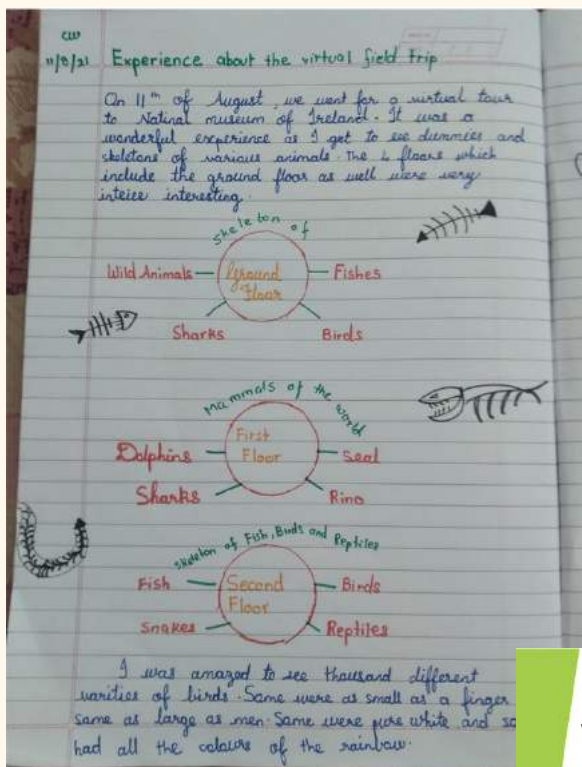 CW
11/8/21 Experience about the virtual field trip
On 11th of August, we went for a virtual tour
to Natinal museum of Ireland. It was a
wonderful experience as I get to see dummies and
skeletons of various animals. The 4 floors which
include the ground floor as well were very
inteice interesting.
Skeleton of
Ground
Floor
Wild Animals
Fishes
Sharks
Birds
Mammals of the world
First
Floor
Dolphins
Seal
Sharks
Rino
Skeleton of Fish, Birds and Reptiles
Second
Floor
Fish
Birds
Snakes
Reptiles
I was amazed to see thousand different
varities of birds. Same were as small as a finger
same as large as men. Same were pure white and
had all the colours of the rainbow.